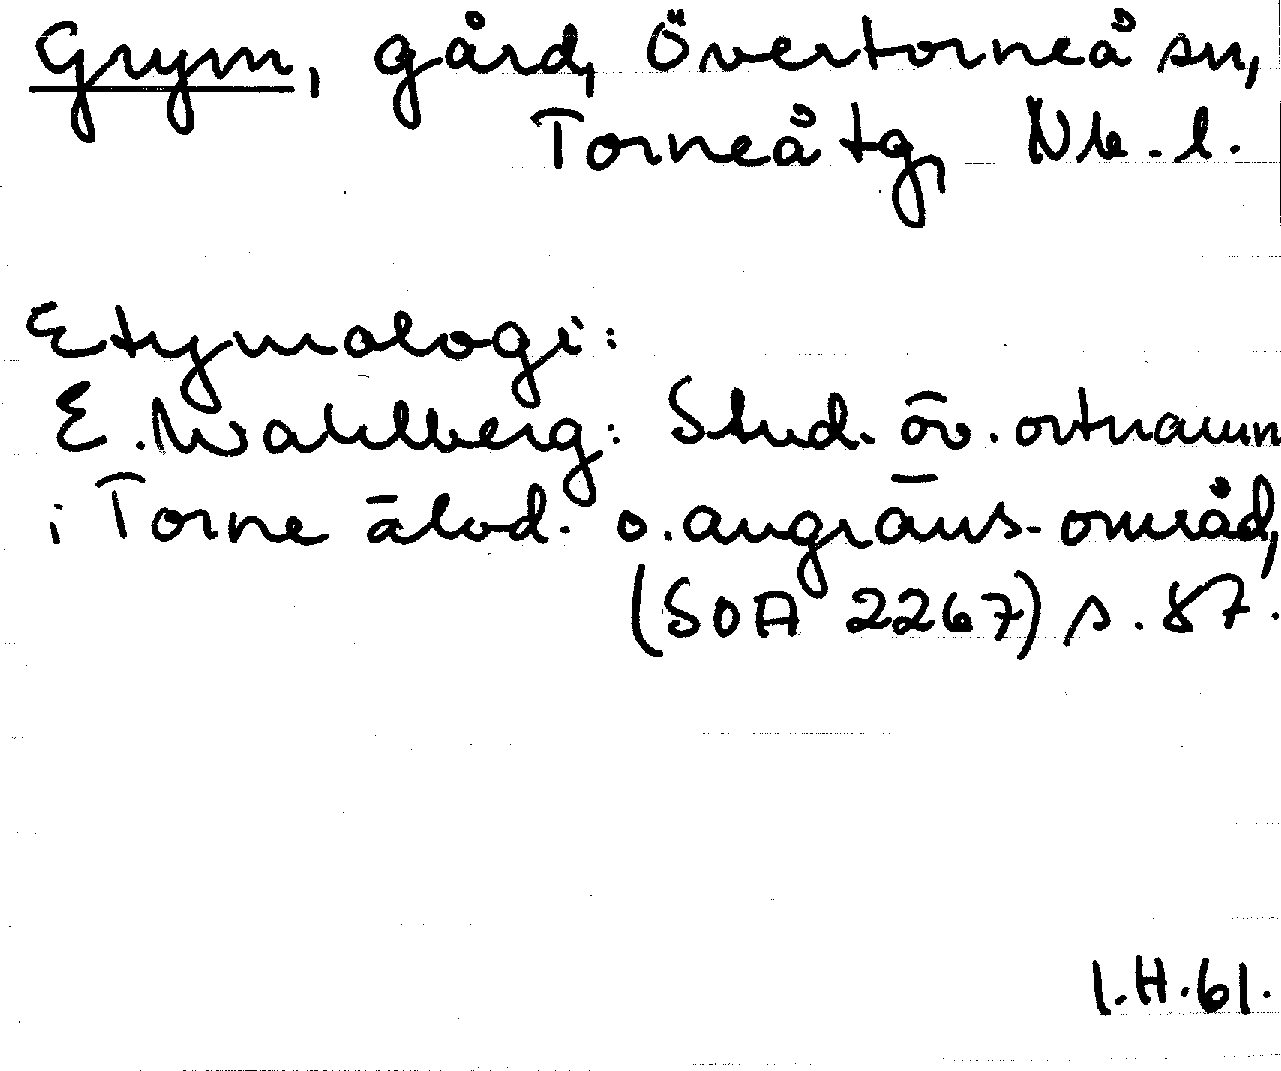 Grym, gård, Övertorneå sn,
Torneå tg, Nb. l.
Etymologi:
E. Wahlberg: Stud. öv. ortnamn
i Torne älvd. o. angräns. områd,
(SOA 2267) s. 87.
I.H. 61.